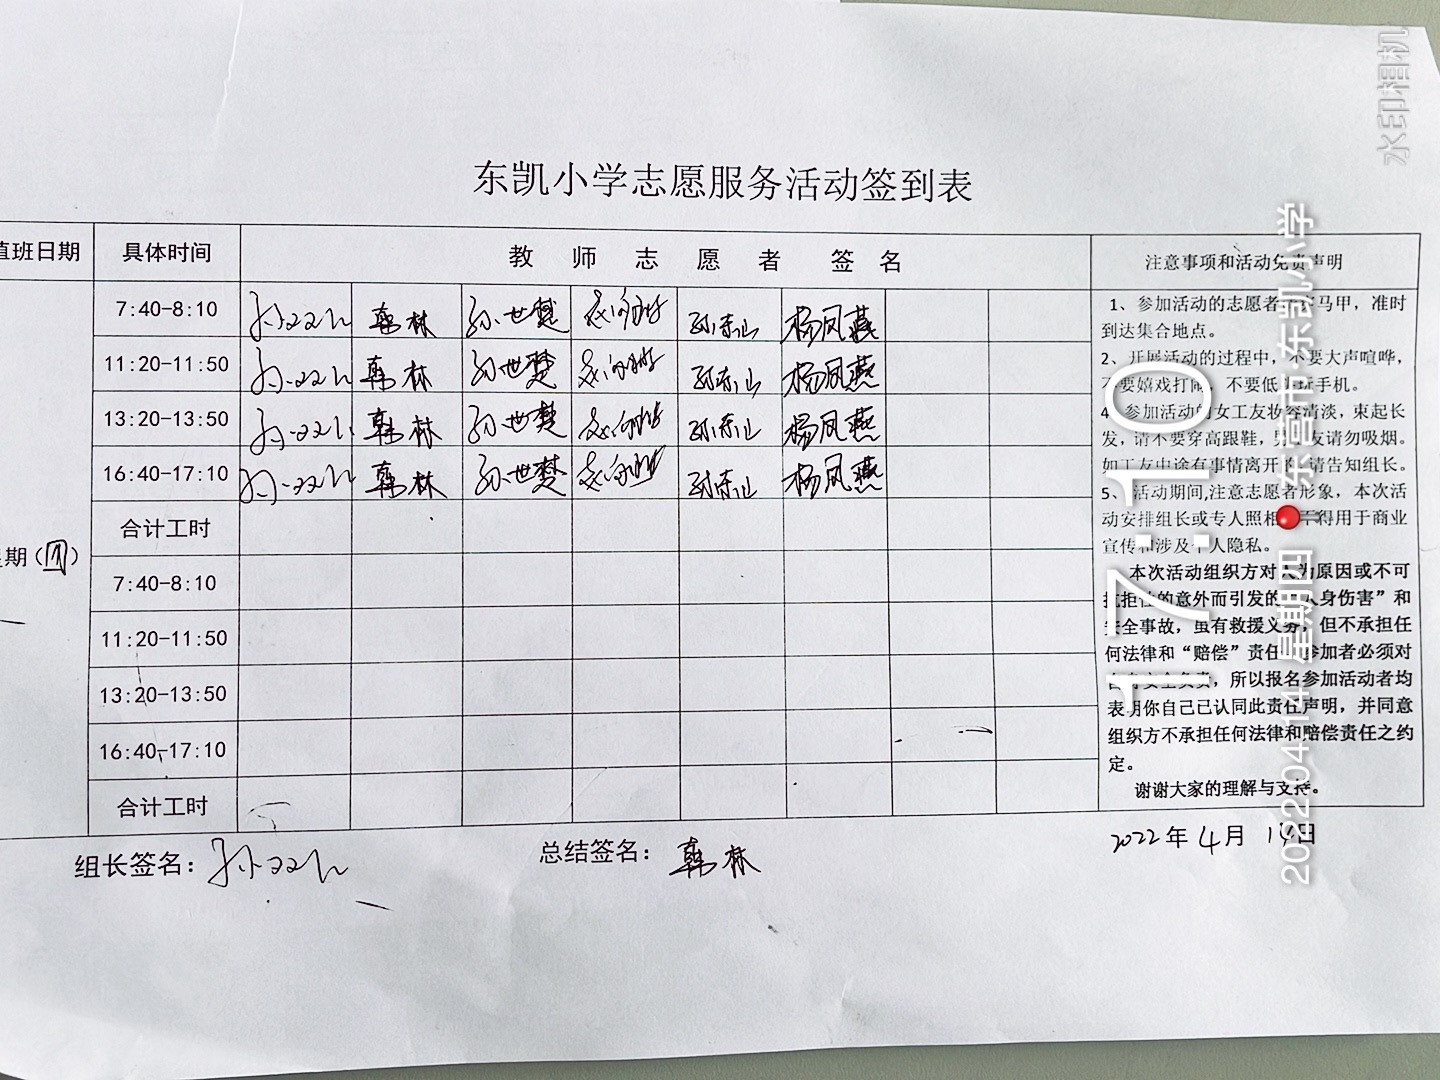 水印相机
东凯小学志愿服务活动签到表
值班日期 具体时间 教师志愿者签名 注意事项和活动免责声明
7:40-8:10 韩林 孙世楚 杨凤燕
11:20-11:50 韩林 孙世楚 杨凤燕
13:20-13:50 韩林 孙世楚 杨凤燕
16:40-17:10 韩林 孙世楚 杨凤燕
合计工时
期(四)
7:40-8:10
11:20-11:50
13:20-13:50
16:40-17:10
合计工时
1、参加活动的志愿者 马甲，准时
到达集合地点。
2、开展活动的过程中，不要大声喧哗，
不要嬉戏打闹，不要低 玩手机。
4、参加活动的女工友妆容清淡，束起长
发，请不要穿高跟鞋，男 友请勿吸烟。
如工友中途有事情离开 请告知组长。
5、活动期间,注意志愿者形象，本次活
动安排组长或专人照相 不得用于商业
宣传和涉及个人隐私。
本次活动组织方对 为原因或不可
抗拒 的意外而引发的 人身伤害”和
安全事故，虽有救援义务，但不承担任
何法律和“赔偿”责任 参加者必须对
安全负责，所以报名参加活动者均
表明你自己已认同此责任声明，并同意
组织方不承担任何法律和赔偿责任之约
定。
谢谢大家的理解与支持。
组长签名： 总结签名：韩林 2022年4月14日
17:10
东莞市·东凯小学
2022.04.14 星期四